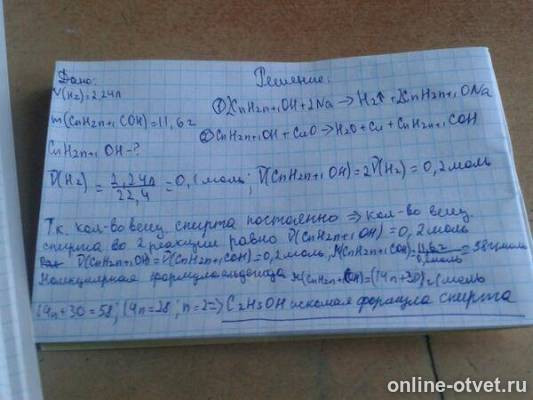 Дано:
V(H2)=2,24л
m(CnH2n+1COH)=11,6г
CnH2n+1OH-?
Решение:
① 2CnH2n+1OH+2Na⇒H2↑+2CnH2n+1ONa
② CnH2n+1OH+CuO⇒H2O+Cu+CnH2n+1COH
ν(H2)=2,24л/22,4=0,1моль; ν(CnH2n+1OH)=2ν(H2)=0,2моль
Т.к. кол-во вещ. спирта постоянно ⇒ кол-во вещ.
спирта во 2 реакции равно ν(CnH2n+1OH)=0,2 моль
ν(CnH2n+1OH)=ν(CnH2n+1COH)=0,2моль, M(CnH2n+1COH)=11,6г/0,2моль=58г/моль
Молекулярная формула альдегида M(CnH2n+1COH)=(14n+30)г/моль
14n+30=58; 14n=28; n=2⇒ C2H5OH искомая формула спирта
online-otvet.ru